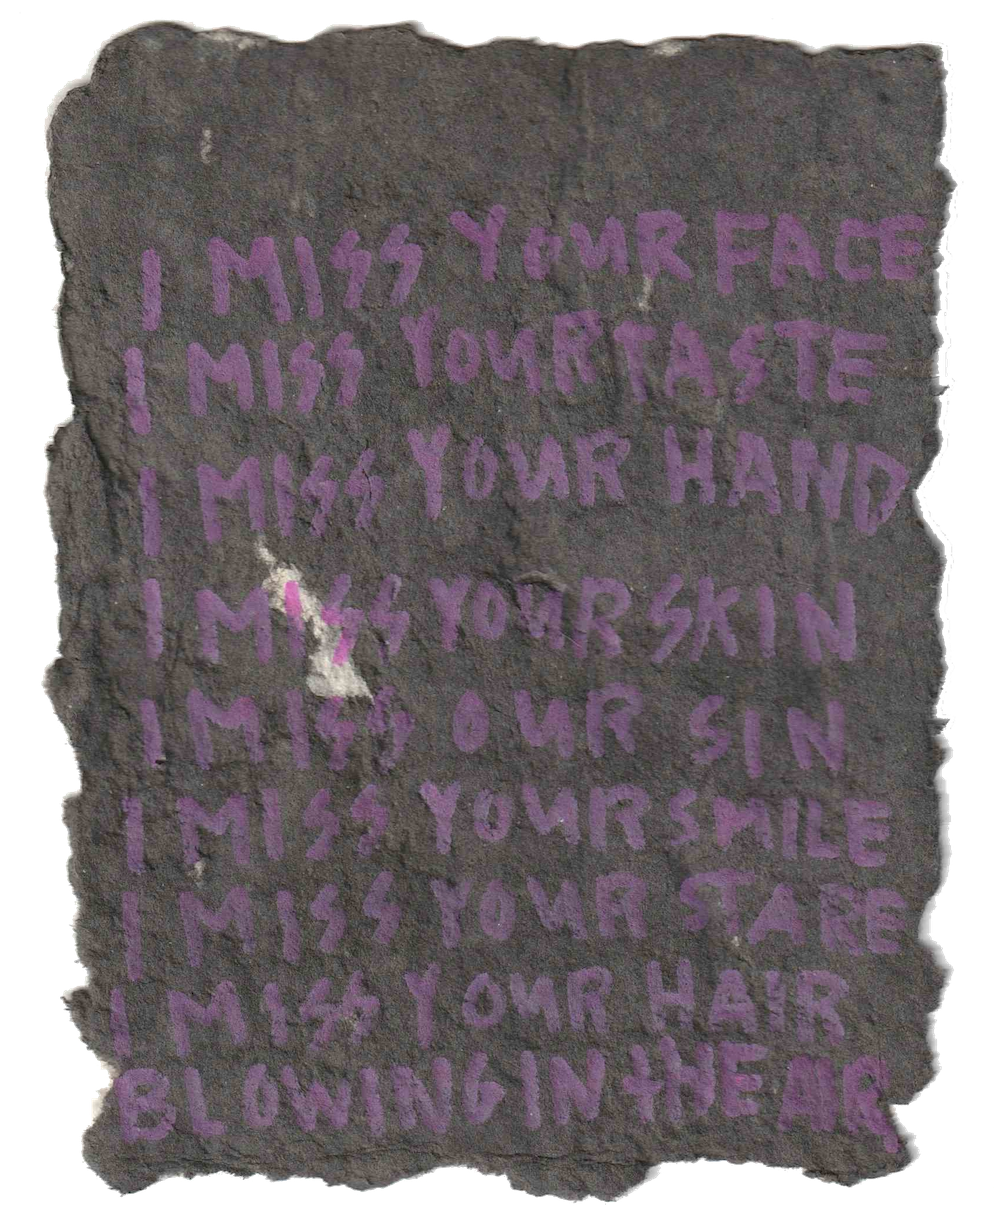 I MISS YOUR FACE
I MISS YOUR TASTE
I MISS YOUR HAND
I MISS YOUR SKIN
I MISS OUR SIN
I MISS YOUR SMILE
I MISS YOUR STARE
I MISS YOUR HAIR
BLOWING IN THE AIR